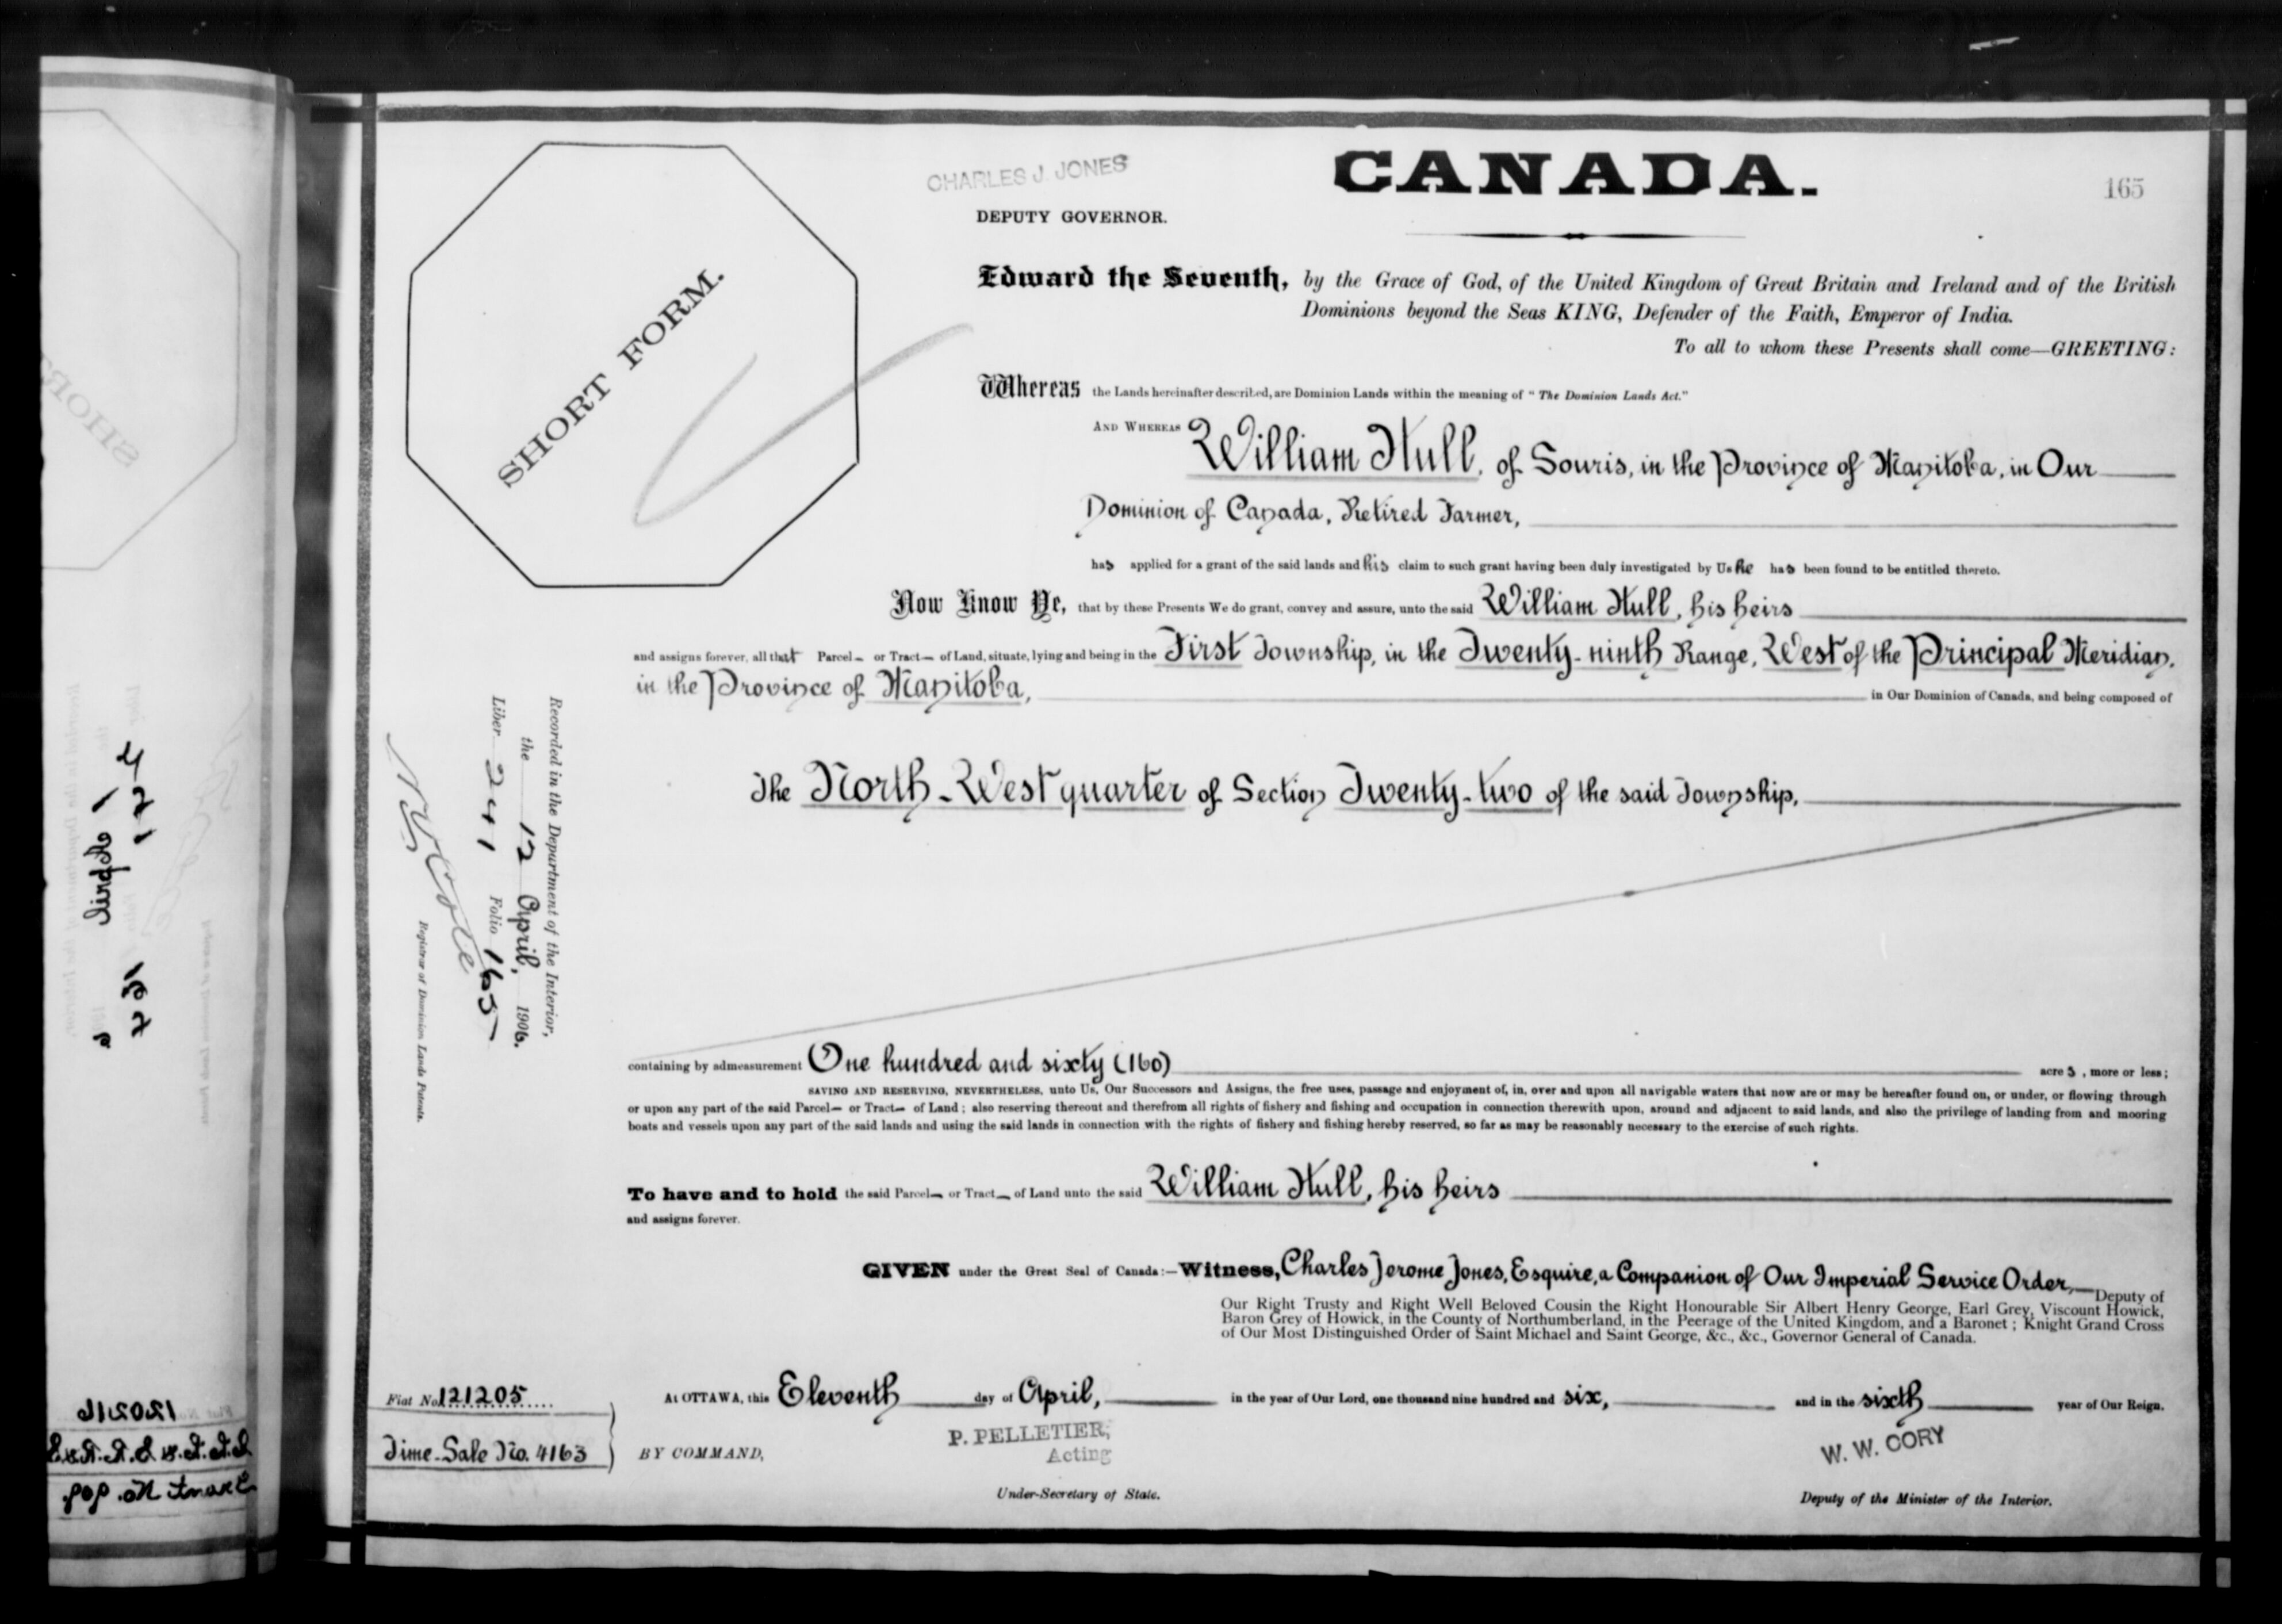 CHARLES J. JONES
CANADA.
165
DEPUTY GOVERNOR.
SHORT FORM.
Edward the Seventh, by the Grace of God, of the United Kingdom of Great Britain and Ireland and of the British
Dominions beyond the Seas KING, Defender of the Faith, Emperor of India.
To all to whom these Presents shall come—GREETING:
Whereas the Lands hereinafter described, are Dominion Lands within the meaning of "The Dominion Lands Act."
AND WHEREAS William Hull, of Souris, in the Province of Manitoba, in Our
Dominion of Canada, Retired Farmer,
has applied for a grant of the said lands and his claim to such grant having been duly investigated by Us he has been found to be entitled thereto.
Now Know Ye, that by these Presents We do grant, convey and assure, unto the said William Hull, his heirs
and assigns forever, all that Parcel or Tract of Land, situate, lying and being in the First Township, in the Twenty-ninth Range, West of the Principal Meridian,
in the Province of Manitoba, in Our Dominion of Canada, and being composed of
The North-West quarter of Section Twenty-two of the said Township,
Recorded in the Department of the Interior,
the 12 April, 1906.
Liber 241 Folio 165
Registrar of Dominion Lands Patents.
containing by admeasurement One hundred and sixty (160) acres, more or less;
SAVING AND RESERVING, NEVERTHELESS, unto Us, Our Successors and Assigns, the free uses, passage and enjoyment of, in, over and upon all navigable waters that now are or may be hereafter found on, or under, or flowing through
or upon any part of the said Parcel or Tract of Land; also reserving thereout and therefrom all rights of fishery and fishing and occupation in connection therewith upon, around and adjacent to said lands, and also the privilege of landing from and mooring
boats and vessels upon any part of the said lands and using the said lands in connection with the rights of fishery and fishing hereby reserved, so far as may be reasonably necessary to the exercise of such rights.
To have and to hold the said Parcel or Tract of Land unto the said William Hull, his heirs
and assigns forever.
GIVEN under the Great Seal of Canada:—Witness, Charles Jerome Jones, Esquire, a Companion of Our Imperial Service Order, Deputy of
Our Right Trusty and Right Well Beloved Cousin the Right Honourable Sir Albert Henry George, Earl Grey, Viscount Howick,
Baron Grey of Howick, in the County of Northumberland, in the Peerage of the United Kingdom, and a Baronet; Knight Grand Cross
of Our Most Distinguished Order of Saint Michael and Saint George, &c., &c., Governor General of Canada.
Fiat No. 121205
At OTTAWA, this Eleventh day of April, in the year of Our Lord, one thousand nine hundred and six, and in the sixth year of Our Reign.
Time-Sale No. 4163
BY COMMAND,
P. PELLETIER,
Acting
Under-Secretary of State.
W. W. CORY
Deputy of the Minister of the Interior.